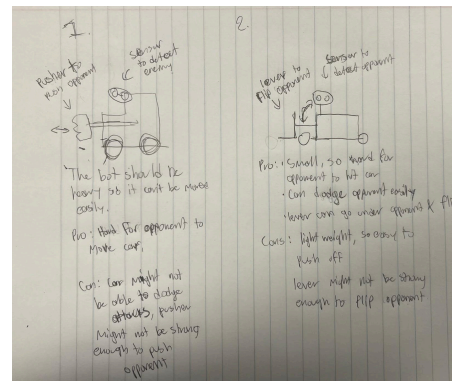 1.
sensor
to detect
enemy
pusher to
ram opponent
The bot should be
heavy so it can't be move
easily.
Pro: Hard for opponent to
move car,
Con: Car might not
be able to dodge
attacks, pusher
Might not be strong
enough to push
opponent
2.
lever to
flip opponent
sensor to
detect opponent
Pro: • Small, so hard for
opponent to hit car
• Can dodge opponent easily
• lever can go under opponent &
Cons: light weight, so easy to
push off
lever Might not be strong
enough to flip opponent